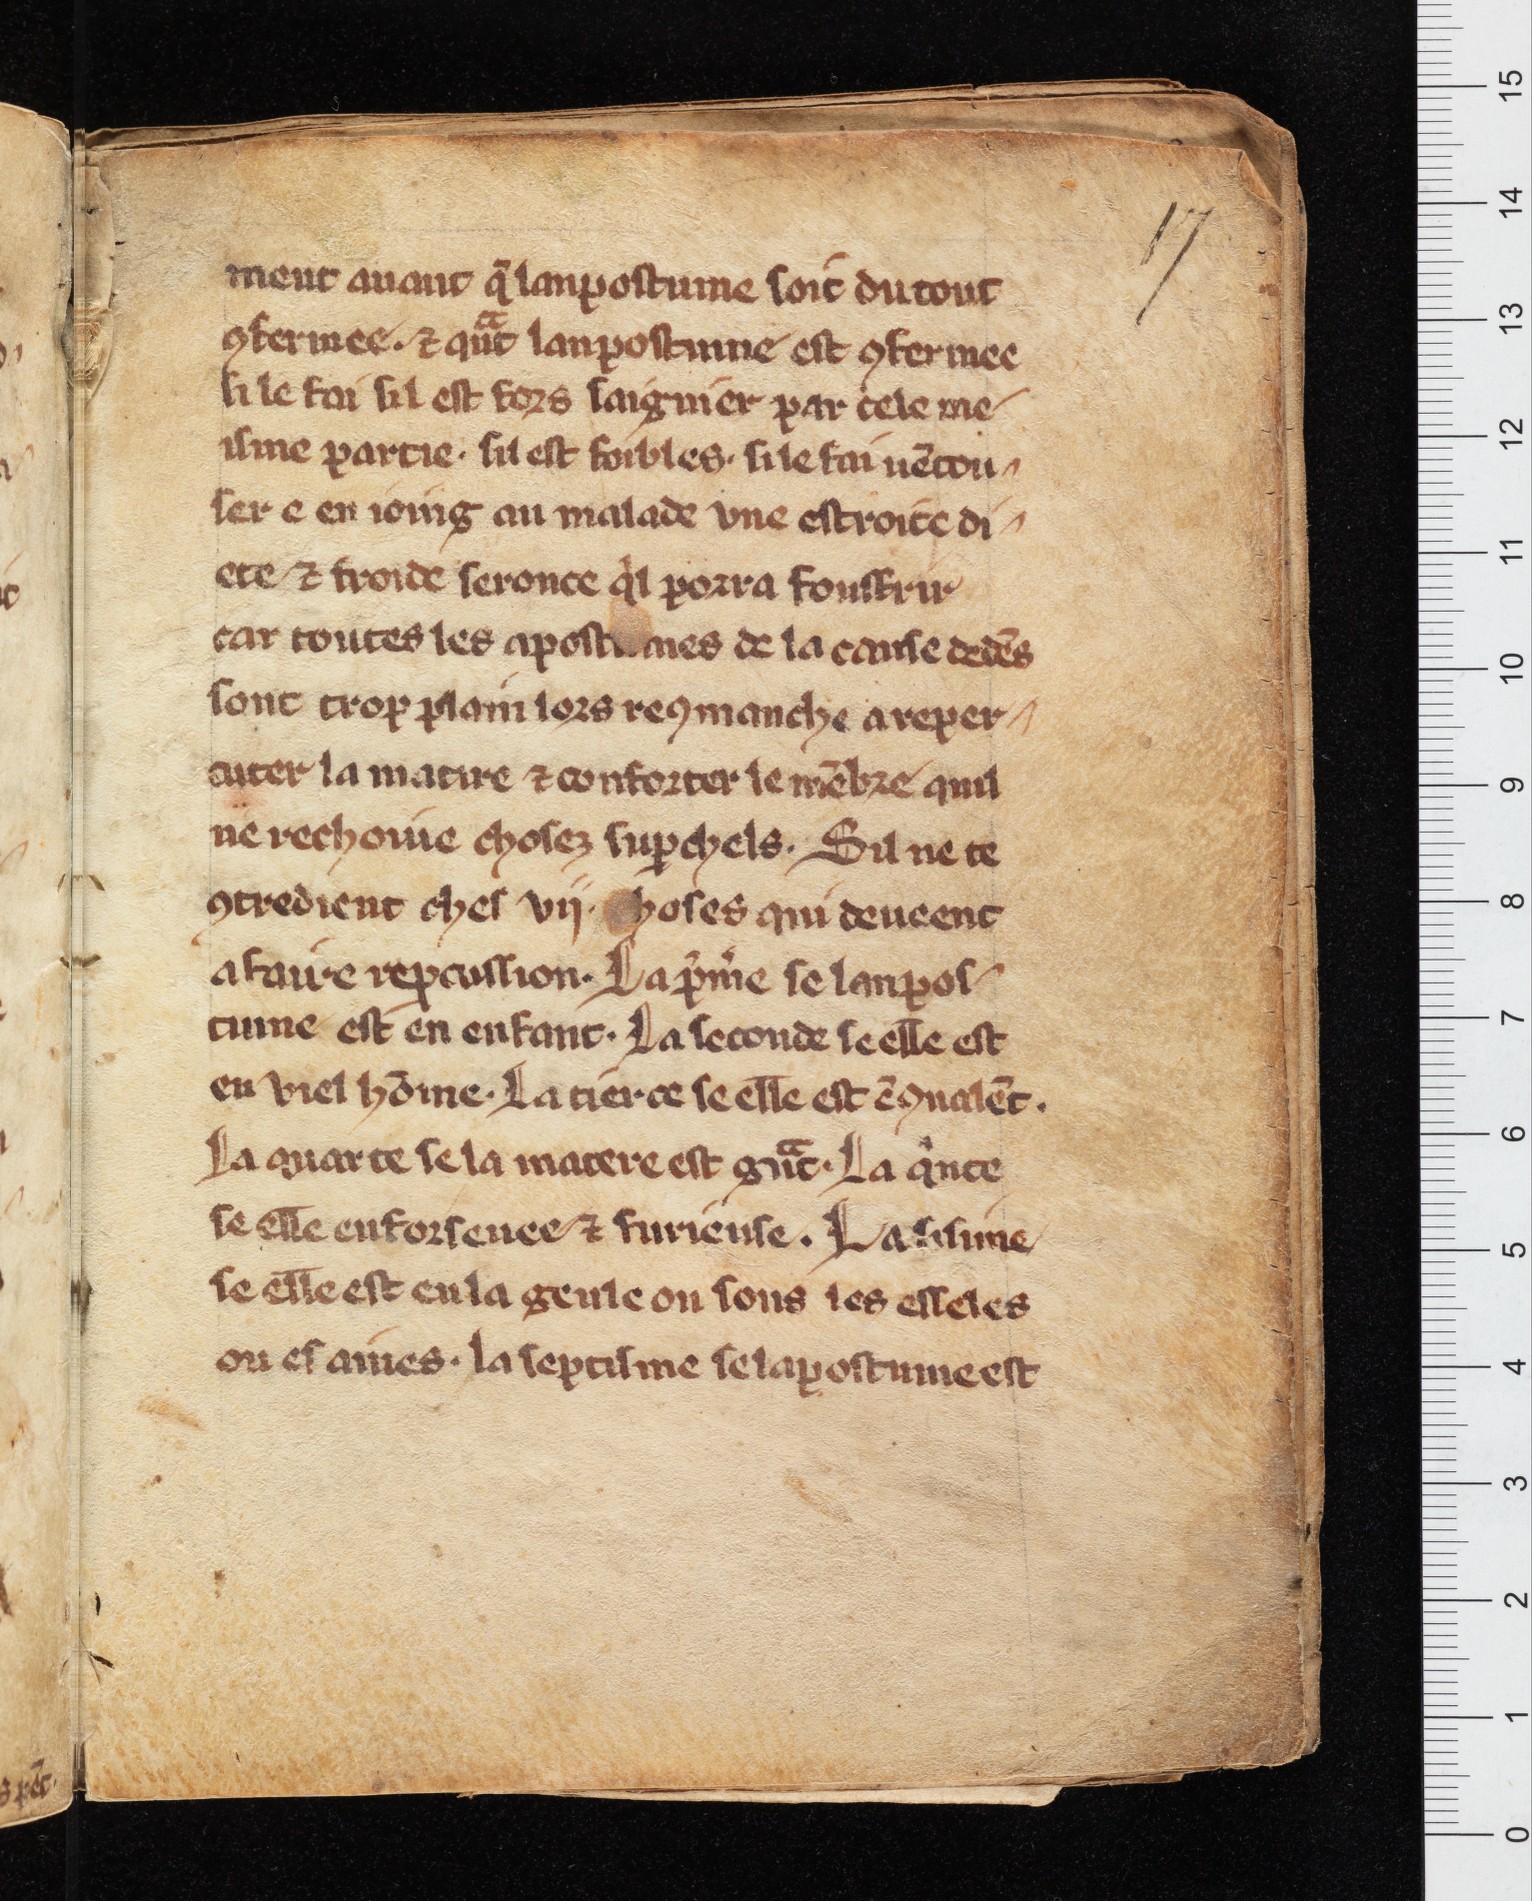 17
ment auant q̃ lanpostume soit du tout
ꝯfermee. ⁊ qͣ̃nt lanpostume est ꝯfermee
si le fai sil est fors saignier par cele me
isme partie. sil est foibles. si le fai uẽtou
ser e en ioing au malade vne estroite di
ete ⁊ froide selonce qͥl porra souffrir
car toutes les apostumes de la cause dedẽs
sont trop plain lors reꝯmanche a reper
cuter la matire ⁊ conforter le mẽbre quil
ne rechoiue chosez suꝑchels. Sil ne te
ꝯtredient ches vij. choses qui deueent
a faire reꝑcussion. La pͥmͥe se lanpos
tume est en enfant. La seconde se elle est
en viel hõme. La tierce se elle est ẽ ꝯualẽt.
La quarte se la matere est gͣ̃nt. La qͥnte
se elle enforsenee ⁊ furieuse. La sisime
se elle est en la geule ou sous les esseles
ou es aines. la septisme se lapostume est
15
14
13
12
11
10
9
8
7
6
5
4
3
2
1
0